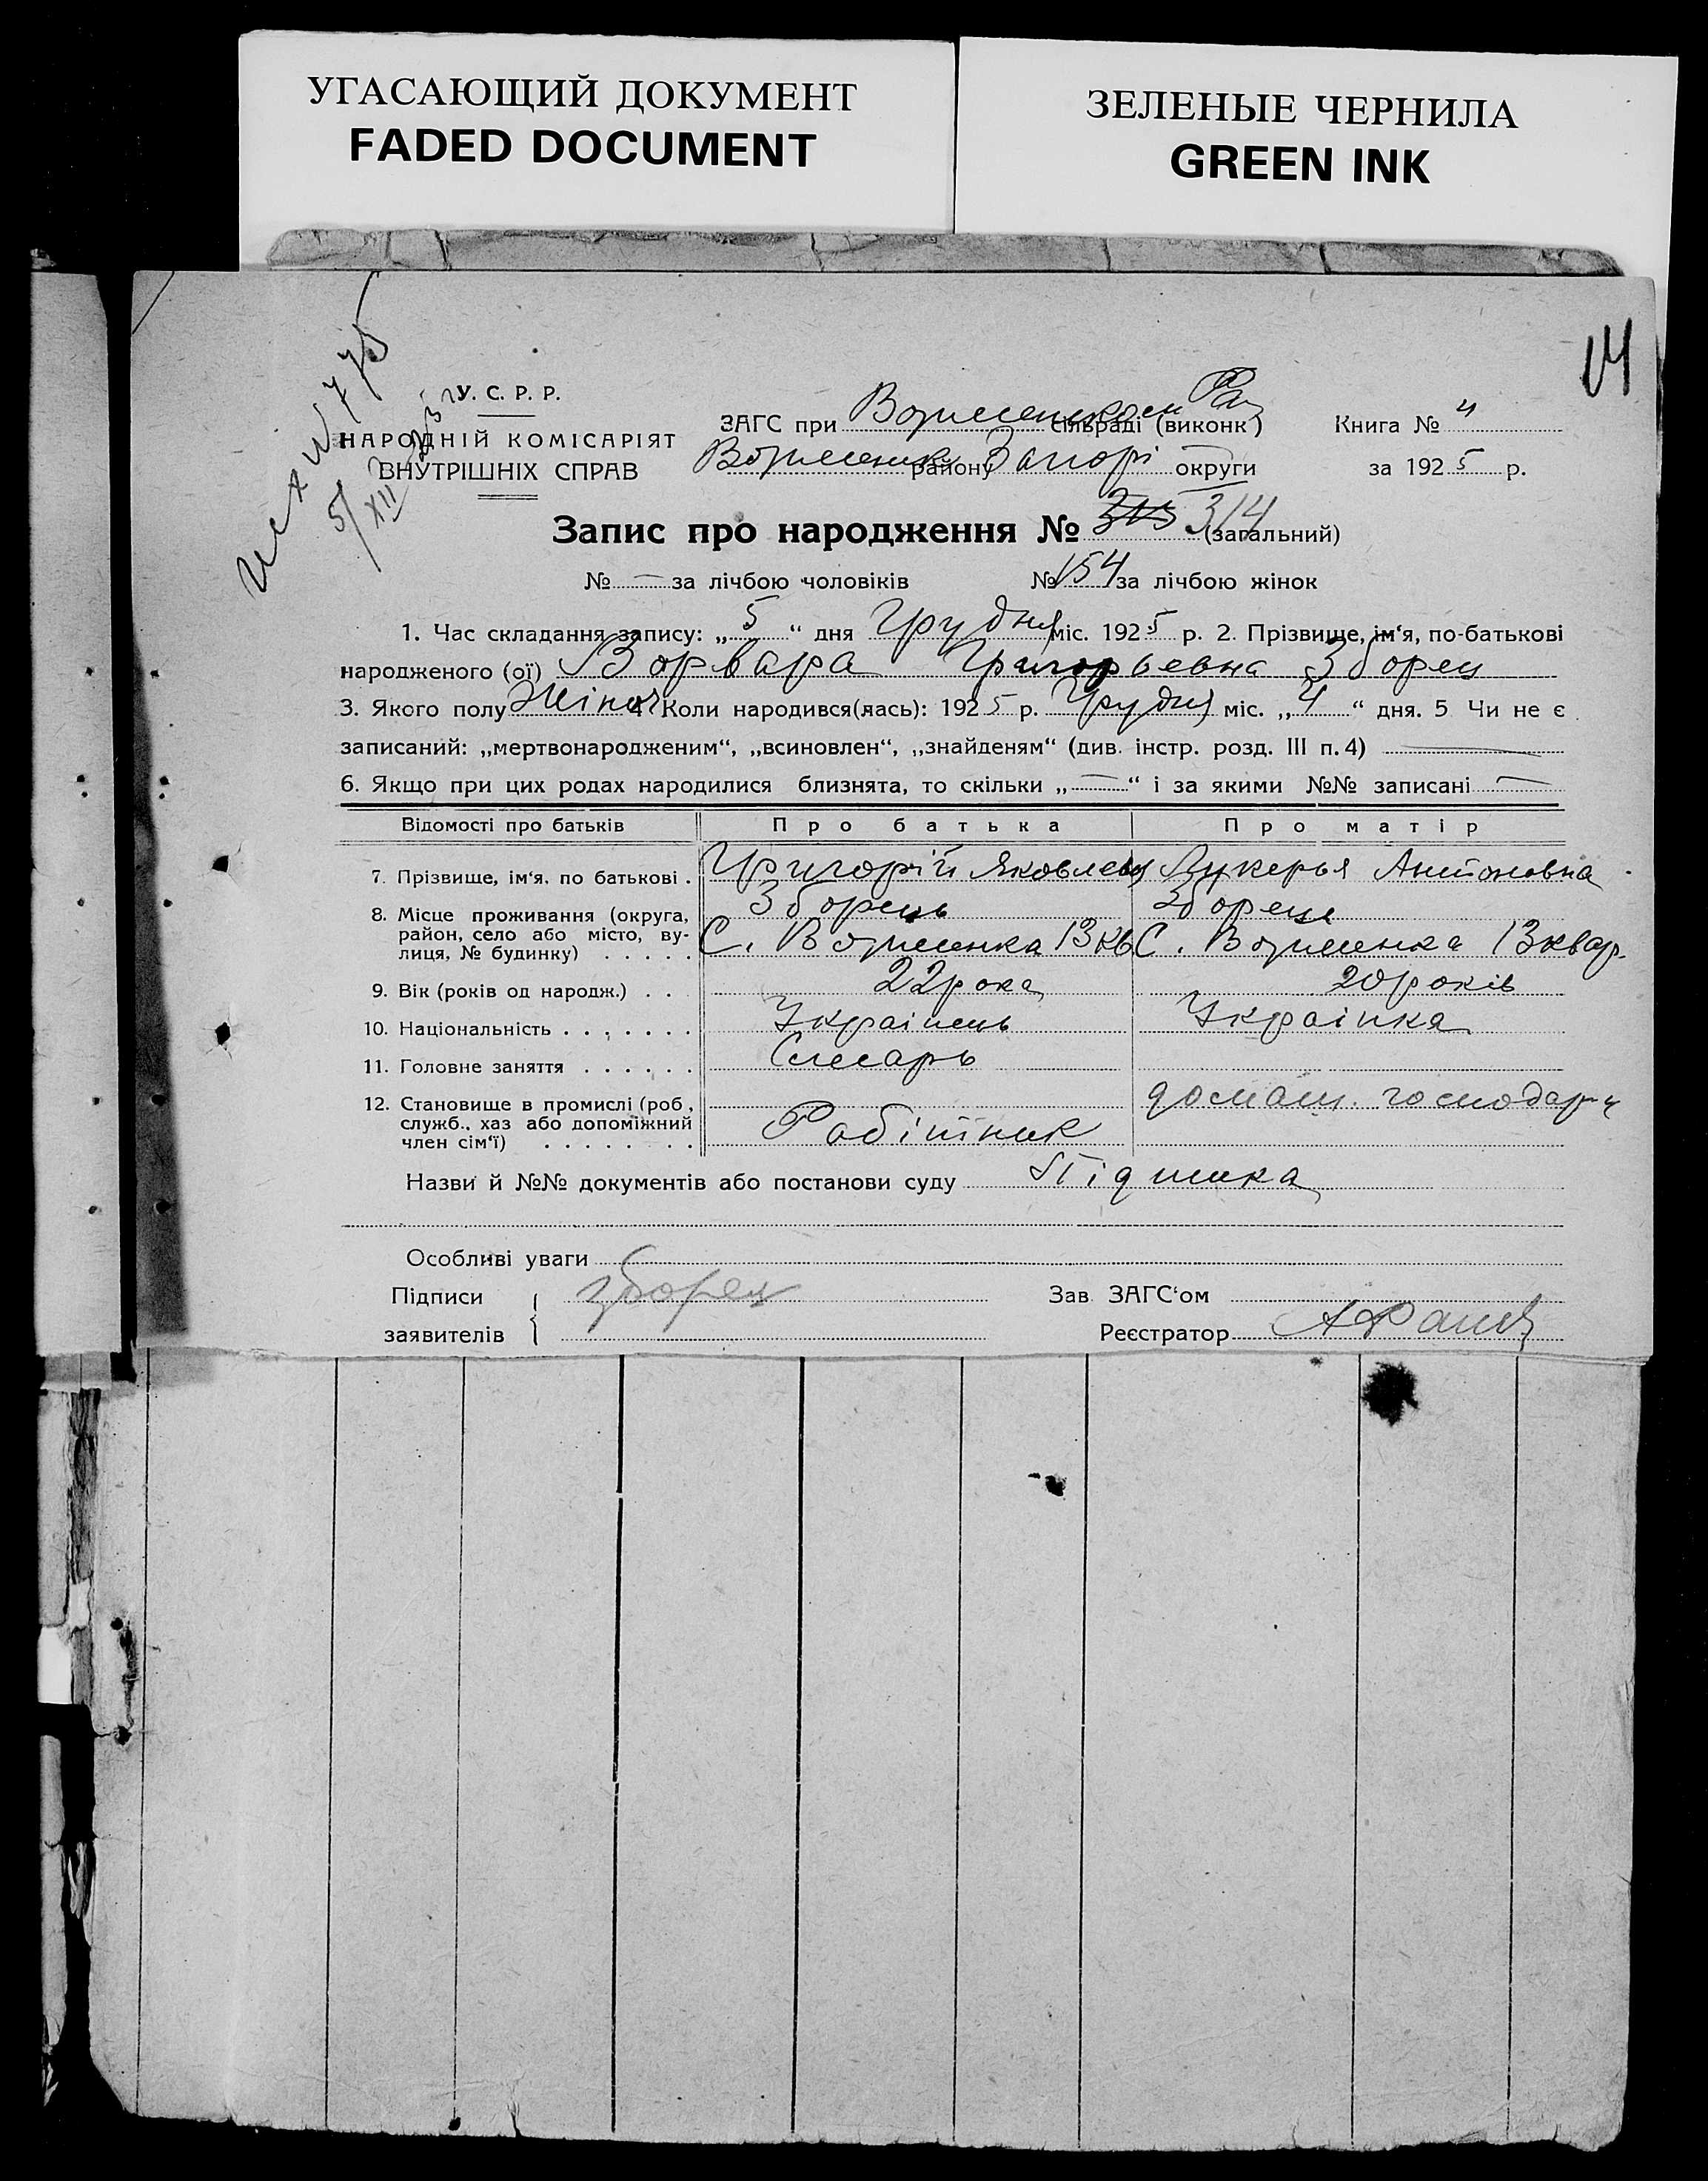 УГАСАЮЩИЙ ДОКУМЕНТ
FADED DOCUMENT
ЗЕЛЕНЫЕ ЧЕРНИЛА
GREEN INK
14
Исх № 775
5/XII
У. С. Р. Р.
НАРОДНІЙ КОМІСАРІЯТ
ВНУТРІШНІХ СПРАВ
ЗАГС при сільраді (виконк.) Книга № 4
району Запорі округи за 1925 р.
Запис про народження № 314 (загальний)
№ — за лічбою чоловіків № 154 за лічбою жінок
1. Час складання запису: „5“ дня Грудня міс. 1925 р. 2. Прізвище, ім‘я, по-батькові
народженого (ої) Ворвара Григорьевна Зборец
3. Якого полу Жіноч 4. Коли народився(лась): 1925 р. Грудня міс. „4“ дня. 5 Чи не є
записаний: „мертвонародженим“, „всиновлен“, „знайденям“ (див. інстр. розд. III п. 4) —
6. Якщо при цих родах народилися близнята, то скільки „—“ і за якими №№ записані —
Відомості про батьків Про батька Про матір
7. Прізвище, ім‘я, по батькові . Григорій Яковлевич Лукерья Антоновна
Зборець Зборець
8. Місце проживання (округа,
район, село або місто, ву-
лиця, № будинку) . . . . . С. Вознесенка 13 кв С. Вознесенка 13 квар.
9. Вік (років од народж.) . . . 22 рока 20 років
10. Національність . . . . . . . Українець Українка
11. Головне заняття . . . . . . Слесарь
12. Становище в промислі (роб.,
служб., хаз або допоміжний
член сім‘ї) . . . . . . . . Робітник домаш. господар
Назви й №№ документів або постанови суду Підписка
Особливі уваги
Підписи зборец Зав ЗАГС‘ом
заявителів Реєстратор